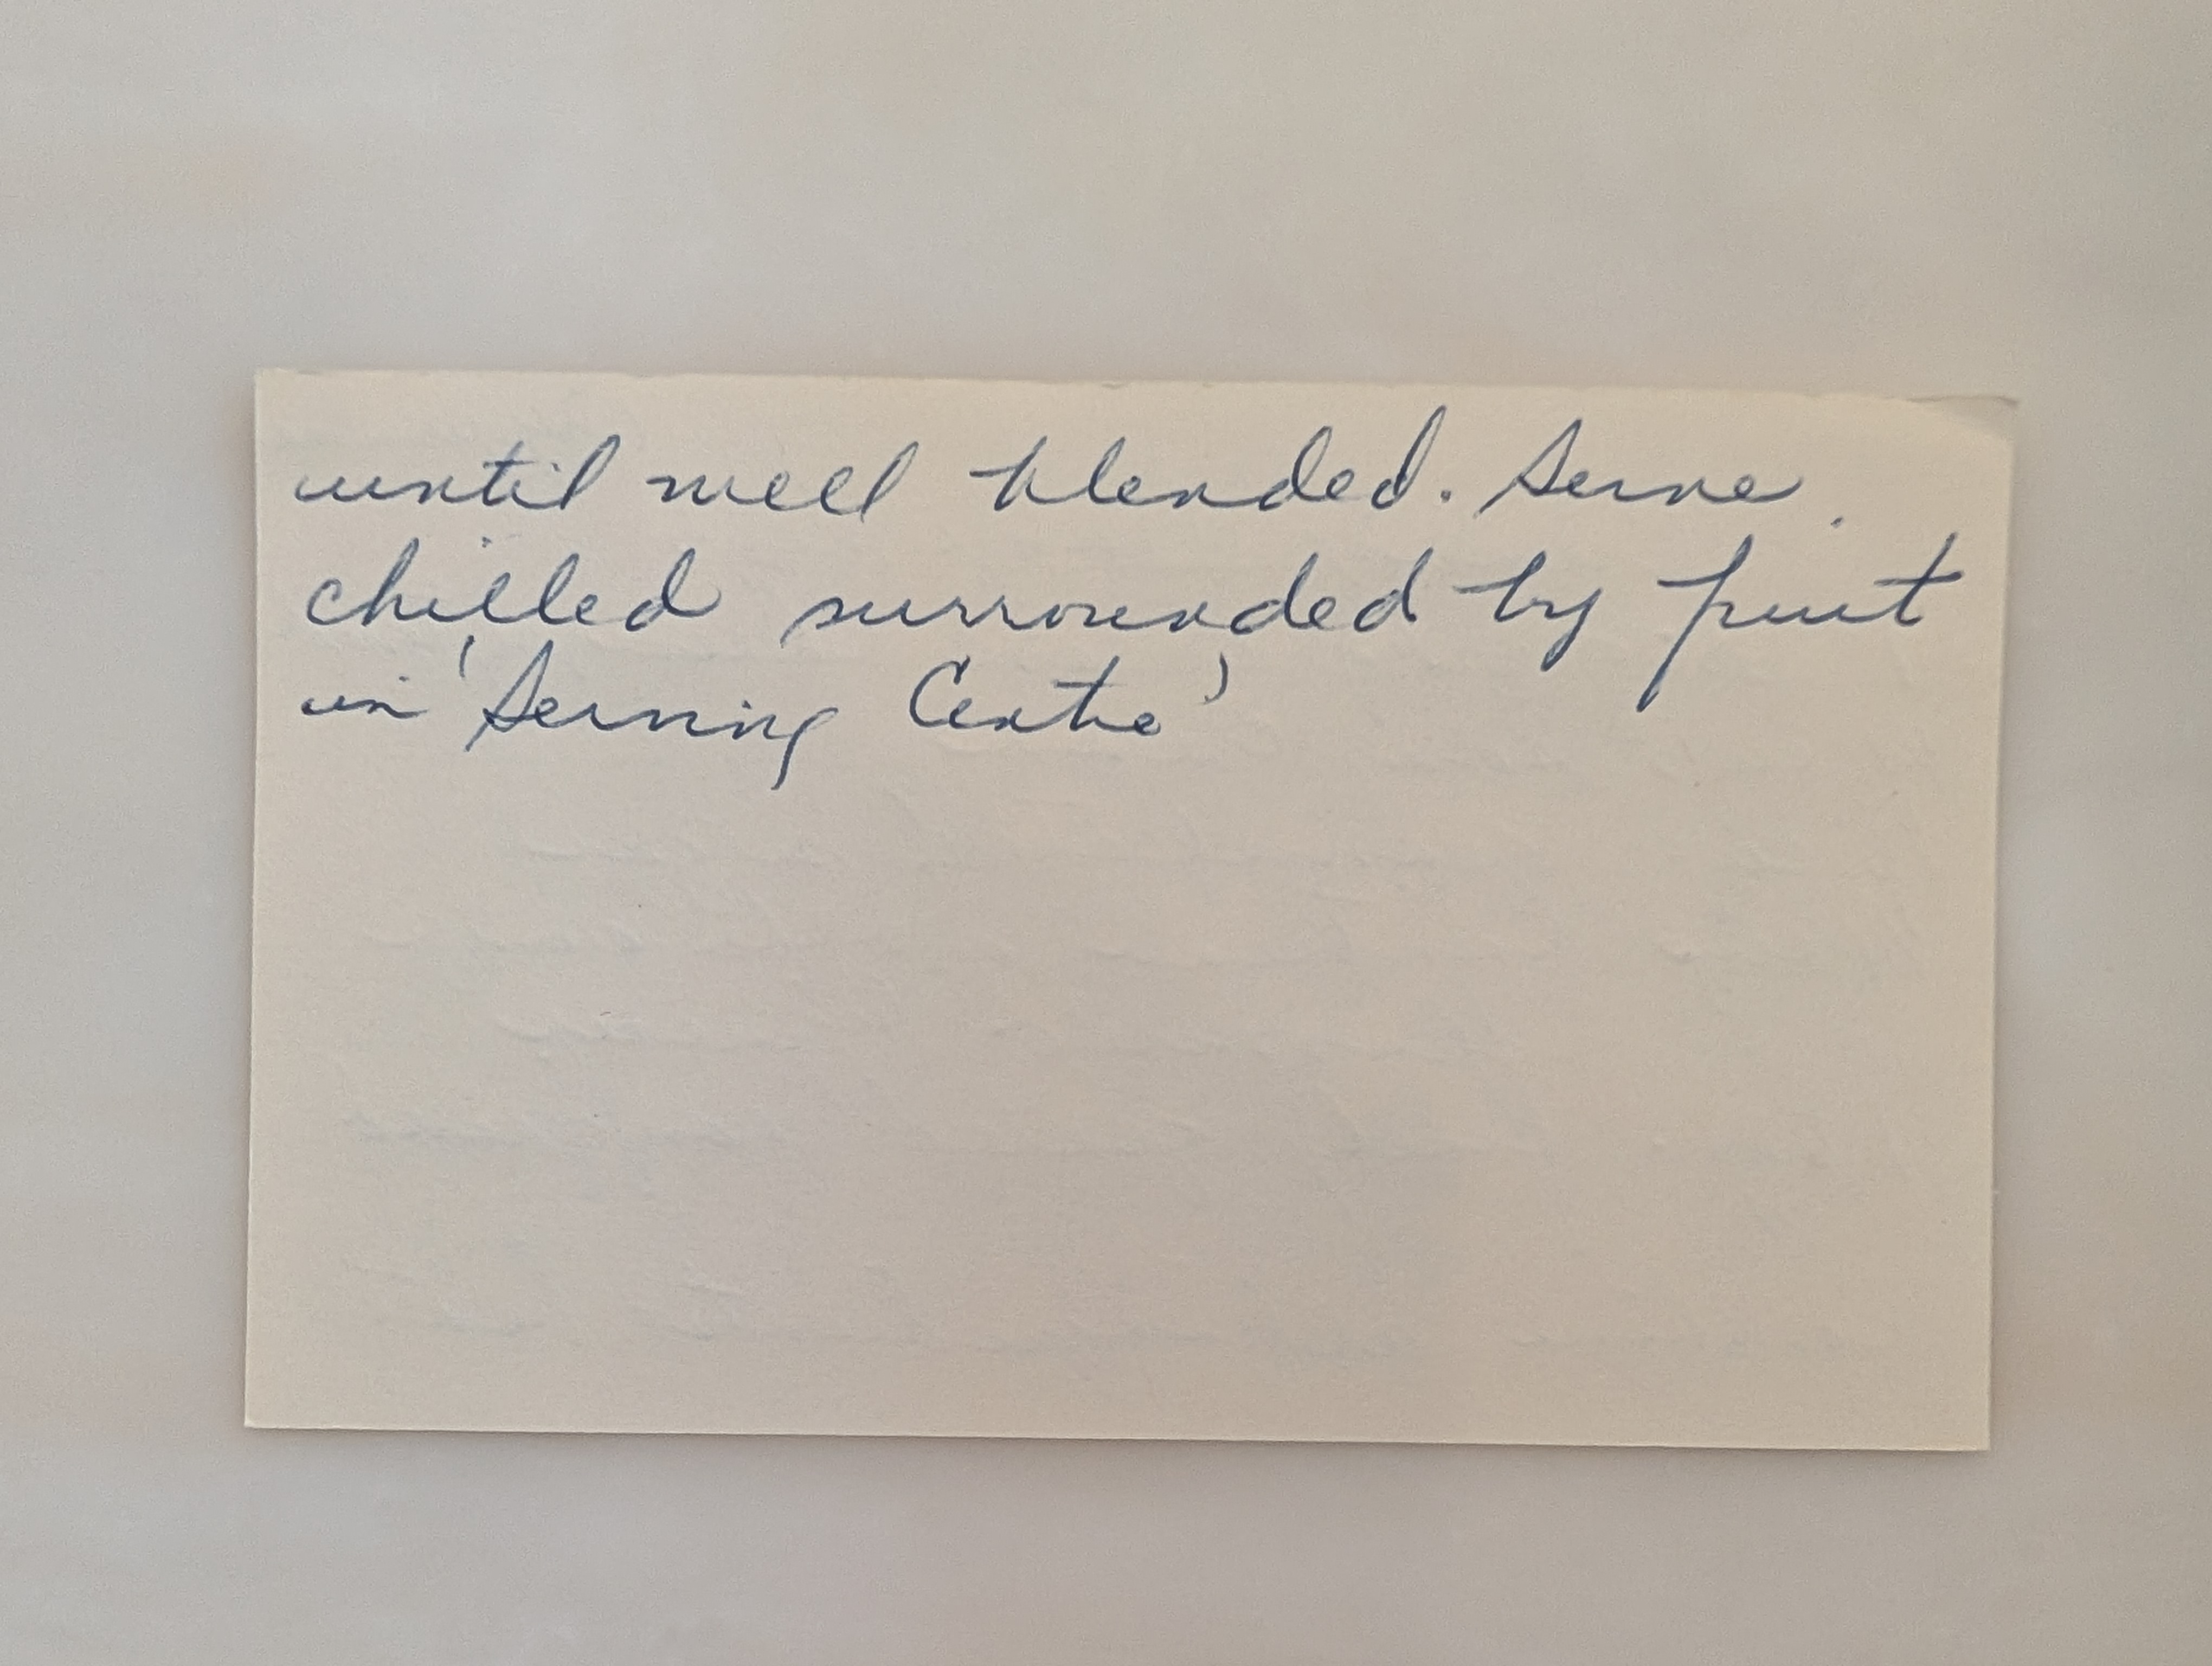 until well blended. Serve
chilled surrounded by fruit
in 'Serving Centre'